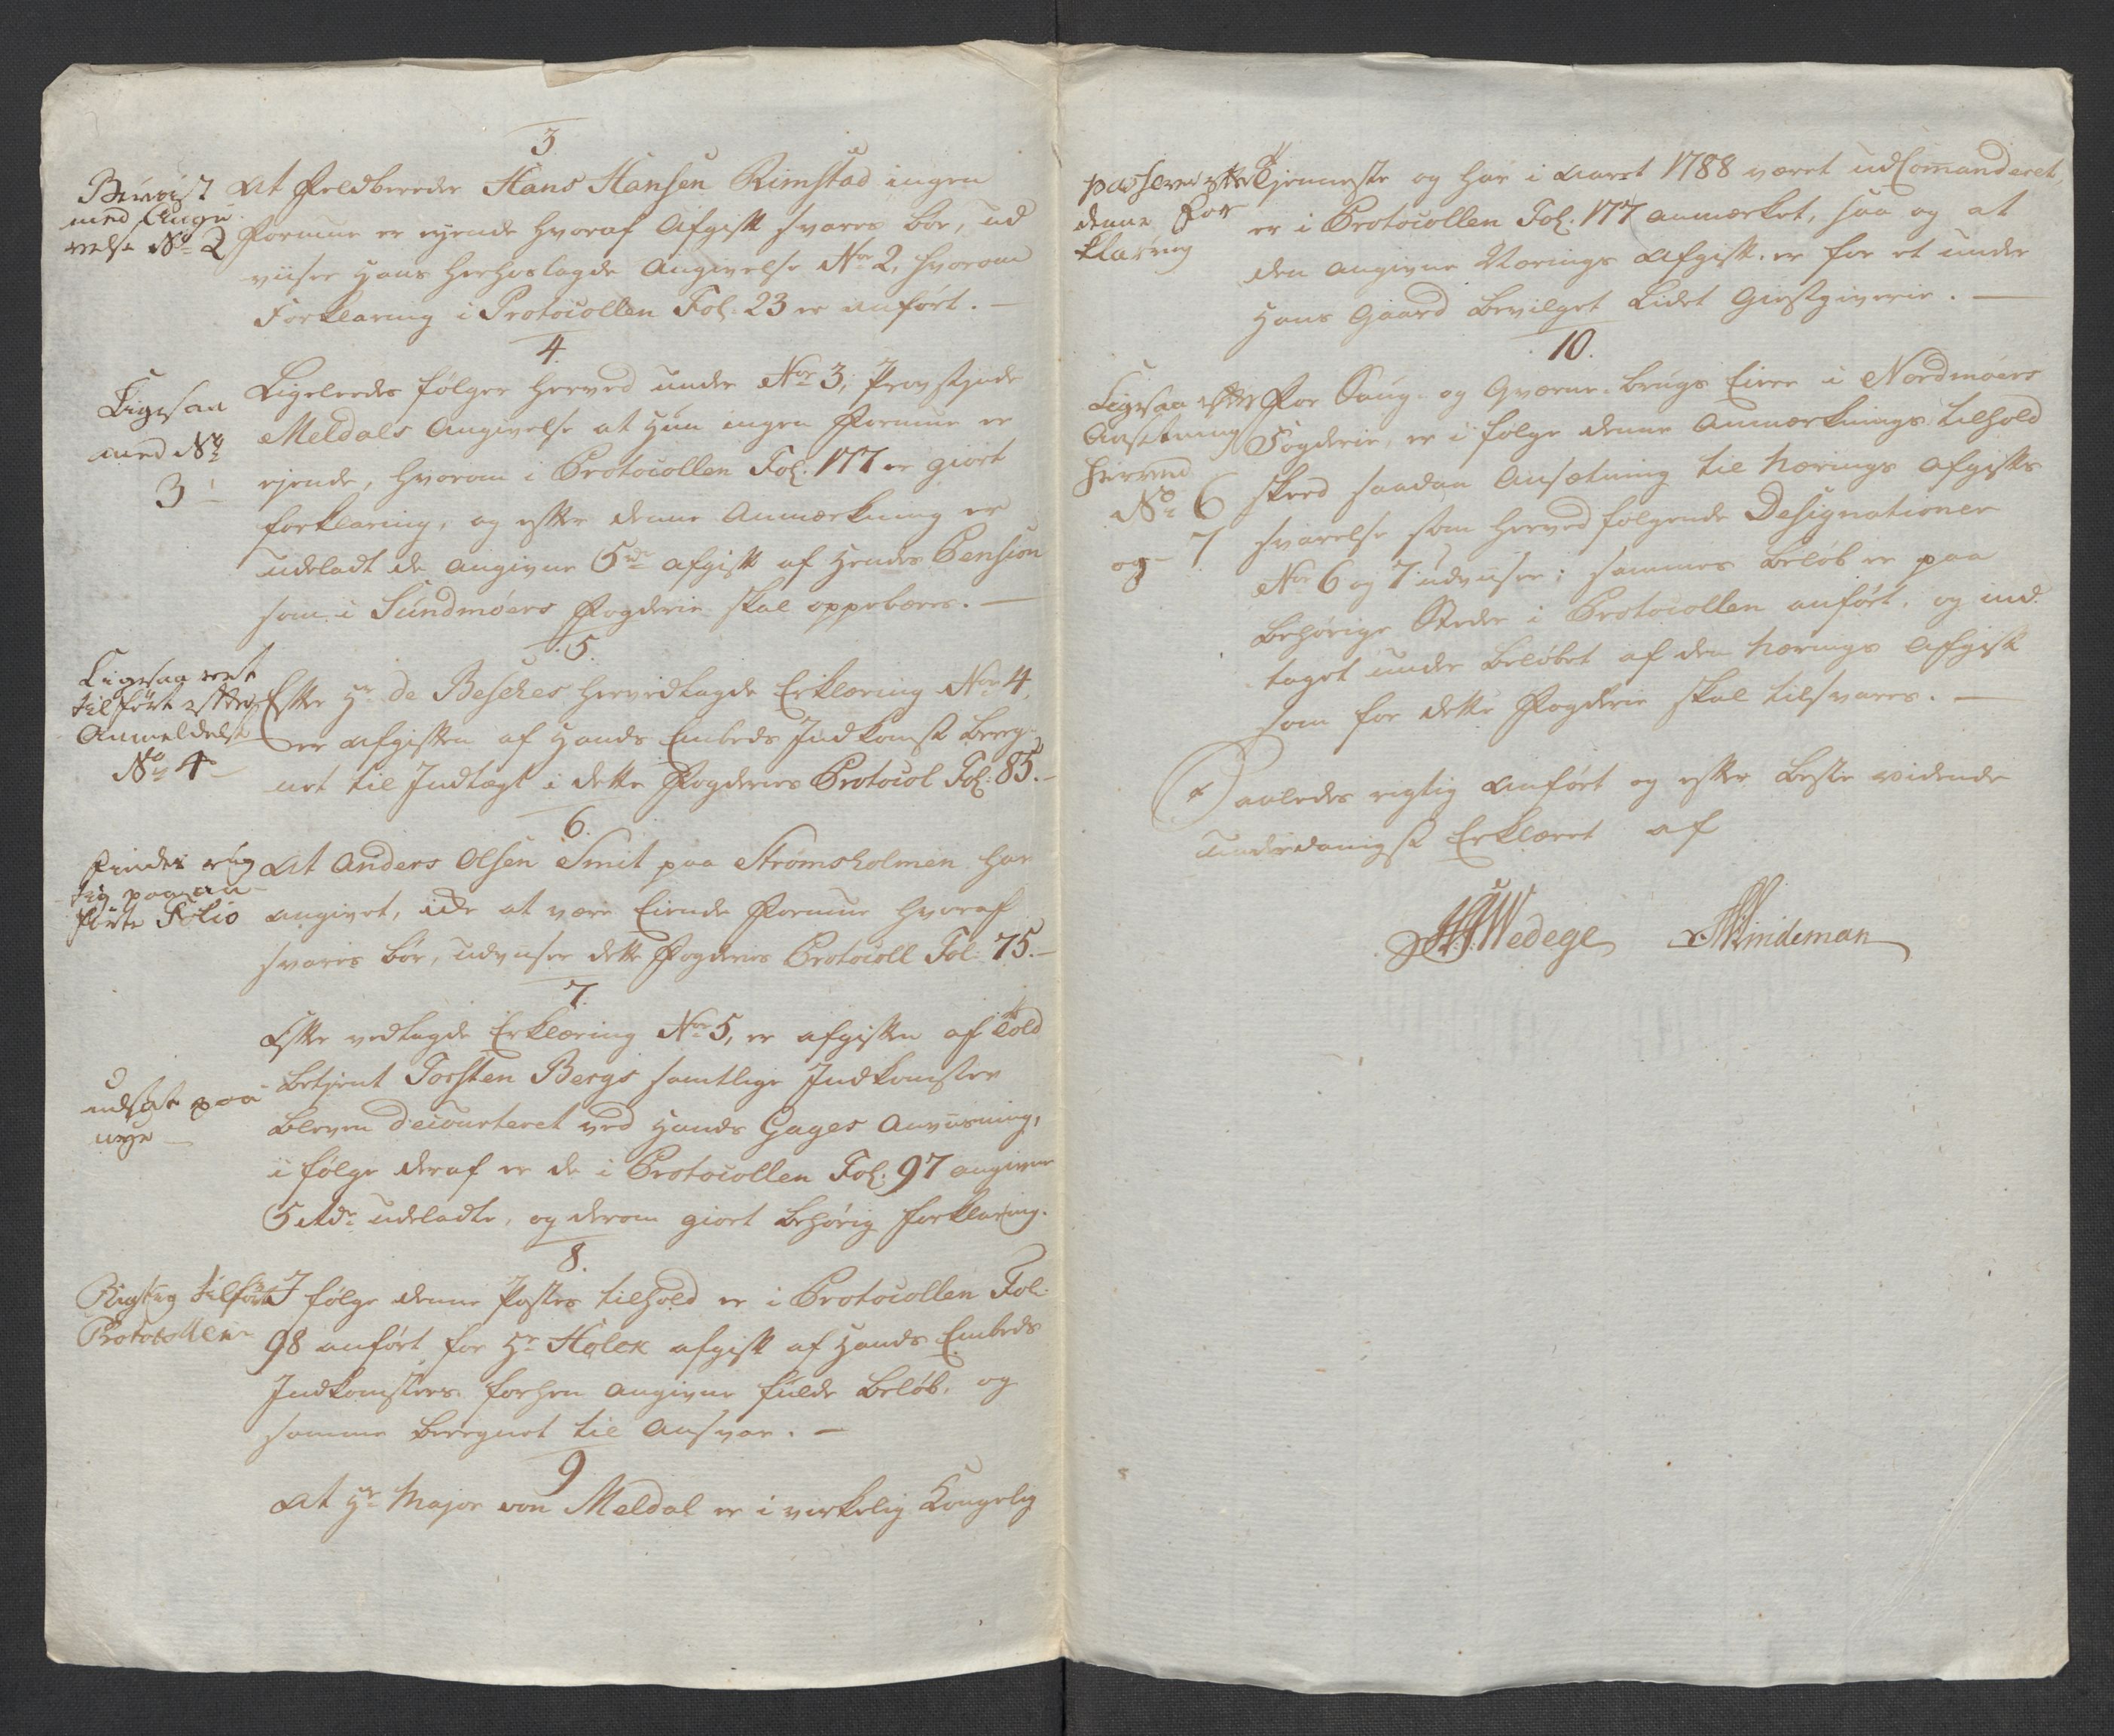 3.
Beviist
med Angi-
velse No 2
At Feldbereder Hans Hansen Rimstad ingen
Formue er ejende hvoraf Afgift svares bør, ud
viiser hans herhoslagde Angivelse Nor 2, hvorom
Forklaring i Protocollen Fol: 23 er anført. —
4.
Ligesaa
med No
3
Ligeledes følger herved under Nor 3, Provstinde
Meldals Angivelse at hun ingen Formue er
ejende, hvorom i Protocollen Fol: 177 er giort
forklaring, og efter denne Anmærkning er
udeladt de angivne 5 rdr afgift af hendes Pension
som i Sundmøers Fogderie skal oppebæres. —
5.
Ligesaa
tilført efter
Anmeldelse
No 4
Efter Hr de Besches hervedlagde Erklæring Nor 4,
er afgiften af Hands Embeds Indkomst bereg-
net til Indtægt i dette Fogderies Protocol Fol: 85. —
6.
Findes rig
tig paa an-
førte Folio
At Anders Olsen Smit paa Strømsholmen har
angivet, icke at være Eiende Formue hvoraf
svares bør, udviiser dette Fogderies Protocoll Fol: 75. —
7.
udsat paa
nye —
Efter vedlagde Erklæring Nor 5, er afgiften af Told
betjent Torsten Bergs samtlige Indkomster
bleven decourteret ved Hands Gages Anviisning,
i følge deraf er de i Protocollen Fol: 97 angivne
5 rdr udeladte, og derom giort behørig forklaring.
8.
Rigtig tilført
Protocollen
I følge denne Postes tilhold er i Protocollen Fol:
98 anført for Hr Holck afgift af Hands Embeds
Indkomsters forhen angivne fulde beløb, og
samme beregnet til Ansvar. —
9
At Hr Major von Meldal er i virkelig Kongelig
passerer efter
denne For
klaring
Tjenneste og har i Aaret 1788 været udComanderet,
er i Protocollen Fol: 177 anmærket, saa og at
den angivne Nærings Afgift er for et under
Hans Gaard bevilget Lidet Giestgiverie. —
10.
Ligesaa efter
Ansætning
herved
No 6
og 7
For Saug- og Qværne-brugs Eiere i Nordmøers
Fogderie, er i følge denne Anmærknings tilhold
skeed saadan Ansætning til Nærings Afgifts
svarelse som herved følgende Designationer
Nor 6 og 7 udviiser; sammes beløb er paa
behørige Steder i Protocollen anført, og ind-
taget under beløbet af den Nærings Afgift
som for dette Fogderie skal tilsvares. —
Saaledes rigtig anført og efter beste vidende
underdanigst Erklæret af
Wedege Lindeman